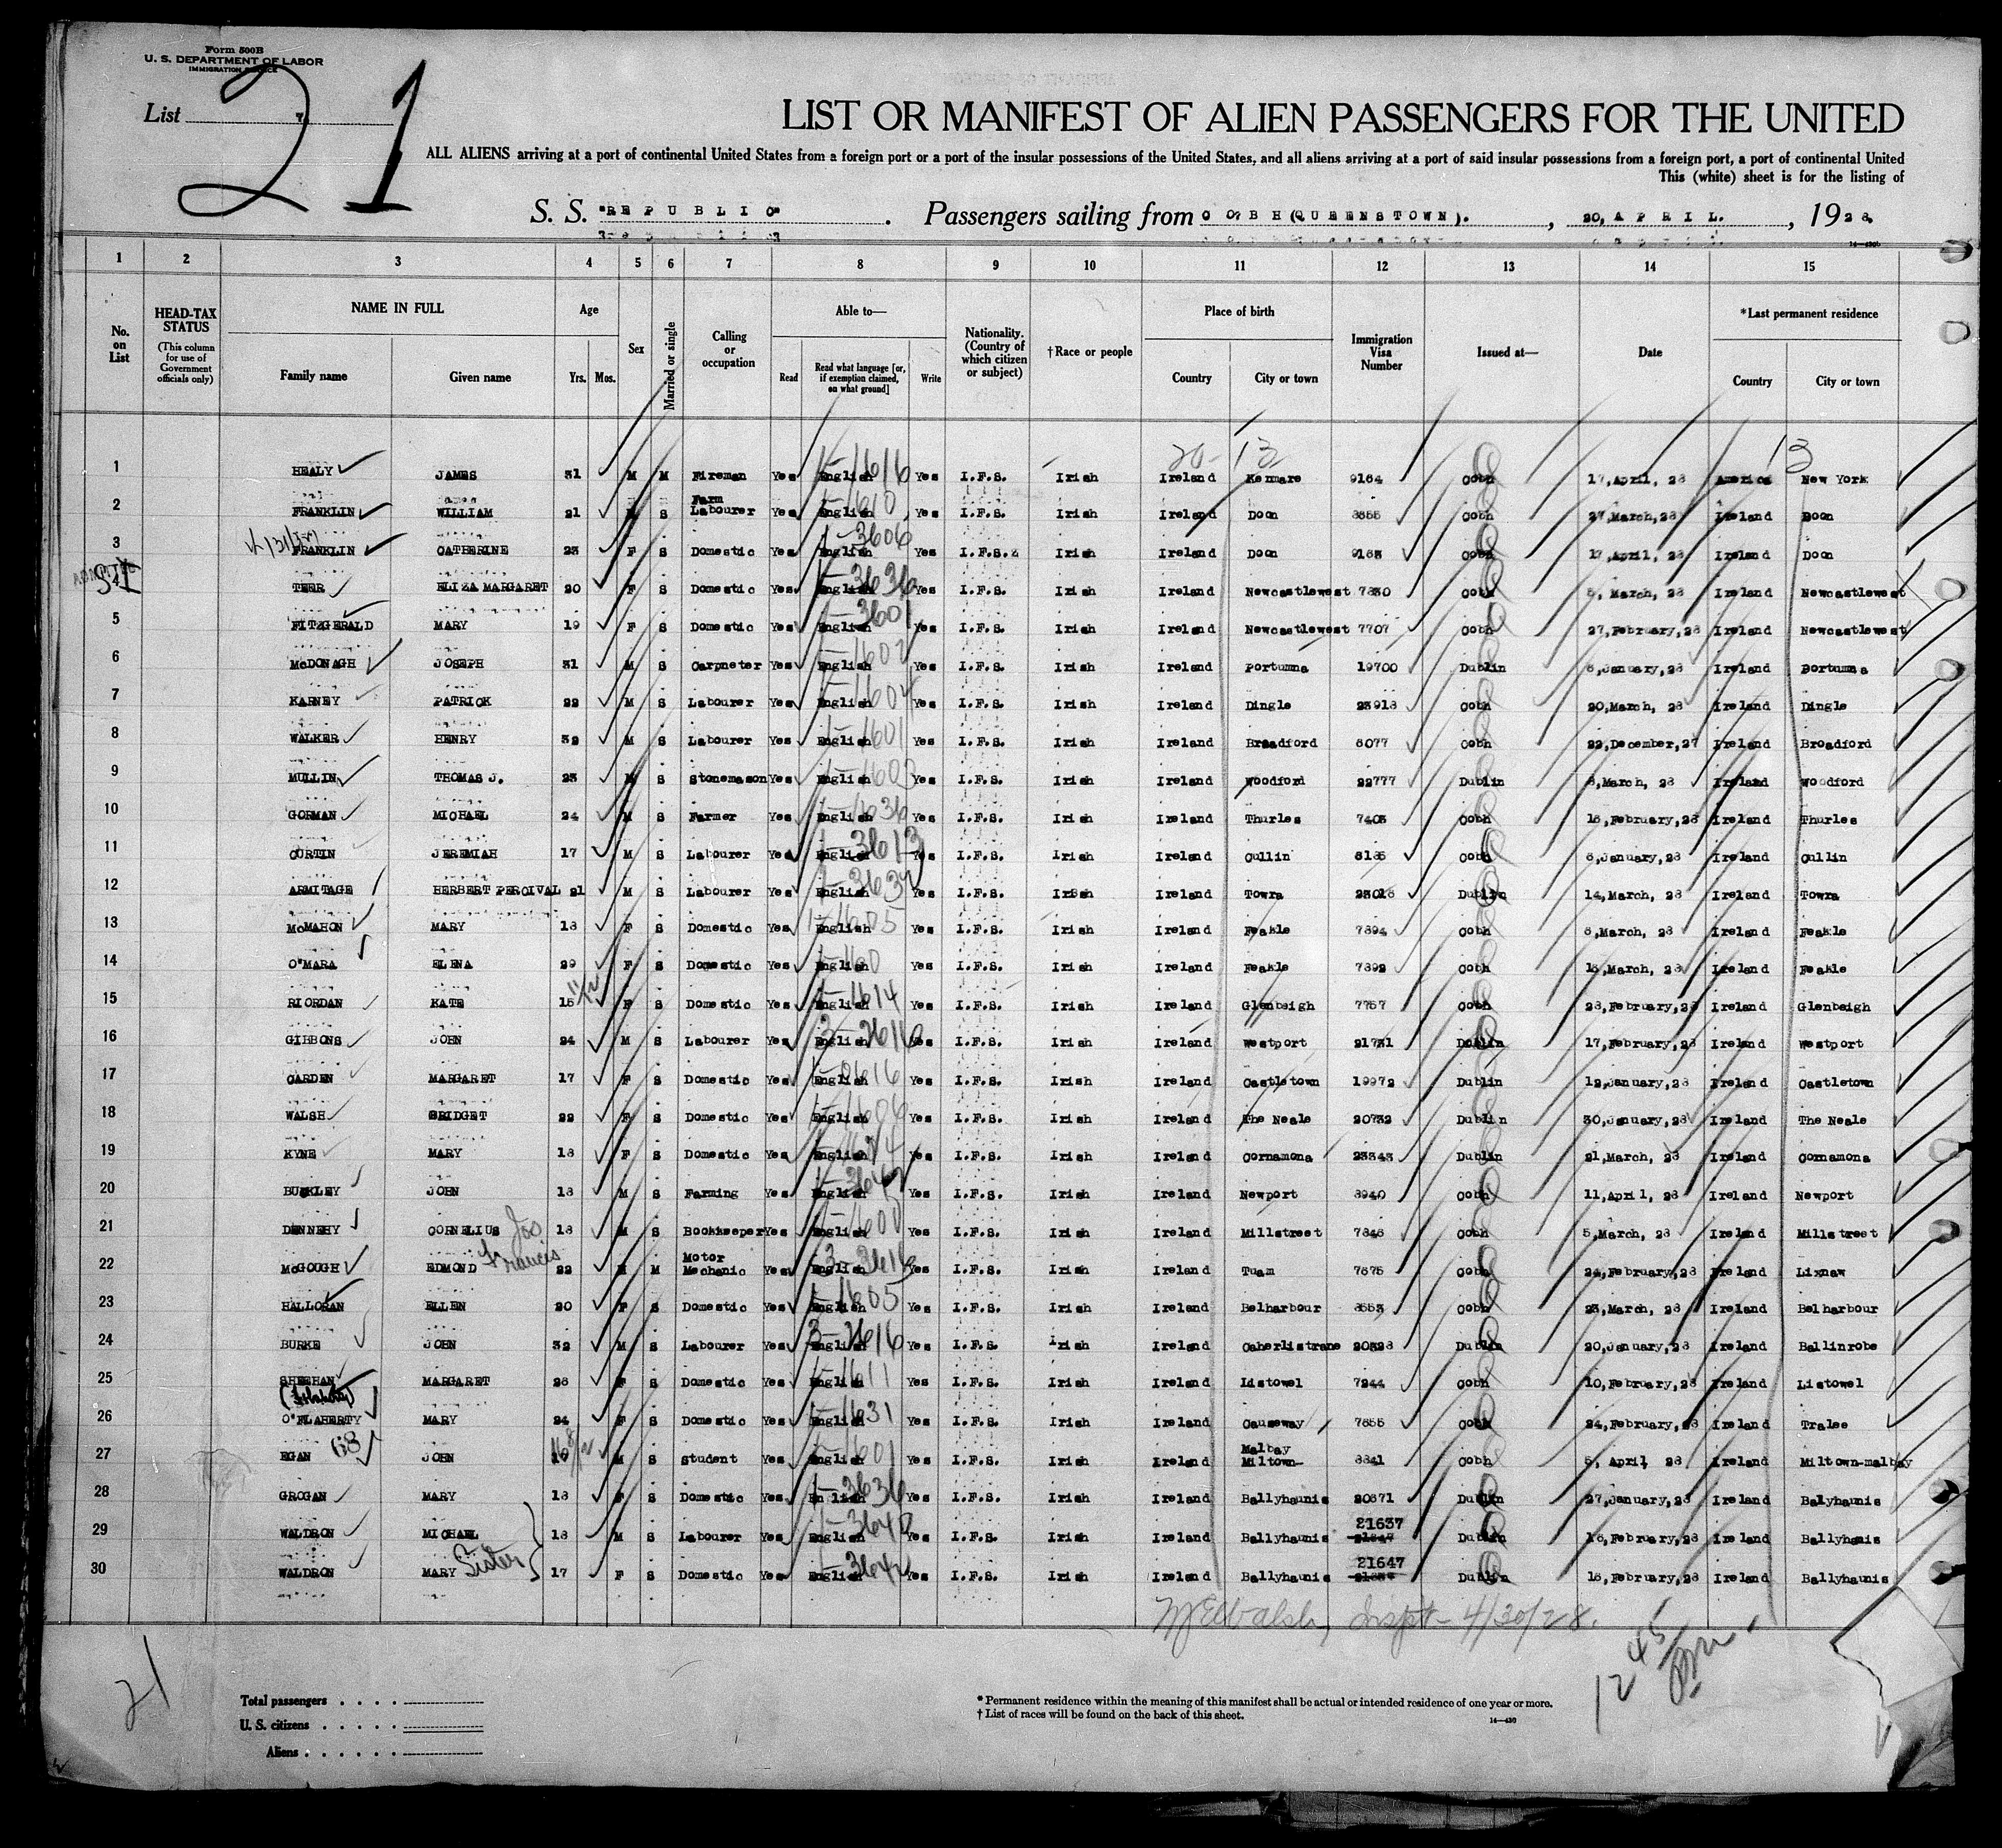 Form 500B
U. S. DEPARTMENT OF LABOR
IMMIGRATION SERVICE
List 21
LIST OR MANIFEST OF ALIEN PASSENGERS FOR THE UNITED
ALL ALIENS arriving at a port of continental United States from a foreign port or a port of the insular possessions of the United States, and all aliens arriving at a port of said insular possessions from a foreign port, a port of continental United
This (white) sheet is for the listing of
S. S. "REPUBLIC". Passengers sailing from COBH (QUEENSTOWN)., 20, APRIL., 1928.
1 2 3 4 5 6 7 8 9 10 11 12 13 14 15
No. on List HEAD-TAX STATUS (This column for use of Government officials only) NAME IN FULL Family name Given name Age Yrs. Mos. Sex Married or single Calling or occupation Able to— Read Read what language [or, if exemption claimed, on what ground] Write Nationality. (Country of which citizen or subject) †Race or people Place of birth Country City or town Immigration Visa Number Issued at— Date *Last permanent residence Country City or town
20- 13 13
1 HEALY JAMES 31 M M Fireman Yes English Yes I.F.S. Irish Ireland Kenmare 9164 Cobh 17, April, 28 America New York
2 FRANKLIN WILLIAM 21 M S Farm Labourer Yes English Yes I.F.S. Irish Ireland Doon Cobh 27, March, 28 Ireland Doon
3 FRANKLIN CATHERINE 23 F S Domestic Yes English Yes I.F.S. Irish Ireland Doon 9163 Cobh 17, April, 28 Ireland Doon
4 TEER ELIZA MARGARET 20 F S Domestic Yes English Yes I.F.S. Irish Ireland Newcastlewest Cobh March, 28 Ireland Newcastlewest
5 FITZGERALD MARY 19 F S Domestic Yes English Yes I.F.S. Irish Ireland Newcastlewest 7707 Cobh 27, February, 28 Ireland Newcastlewest
6 McDONAGH JOSEPH 31 M S Carpneter Yes English Yes I.F.S. Irish Ireland Portumna 19700 Dublin January, 28 Ireland Portumna
7 KARNEY PATRICK 22 M S Labourer Yes English Yes I.F.S. Irish Ireland Dingle Cobh 20, March, 28 Ireland Dingle
8 WALKER HENRY 32 M S Labourer Yes English Yes I.F.S. Irish Ireland Broadford Cobh 22, December, 27 Ireland Broadford
9 MULLIN THOMAS J. 23 M S Stonemason Yes English Yes I.F.S. Irish Ireland Woodford 22777 Dublin March, 28 Ireland Woodford
10 GORMAN MICHAEL 24 M S Farmer Yes English Yes I.F.S. Irish Ireland Thurles 7403 Cobh February, 28 Ireland Thurles
11 CURTIN JEREMIAH 17 M S Labourer Yes English Yes I.F.S. Irish Ireland Cullin Cobh January, 28 Ireland Cullin
12 ARMITAGE HERBERT PERCIVAL 21 M S Labourer Yes English Yes I.F.S. Irish Ireland Towra Dublin 14, March, 28 Ireland Towra
13 McMAHON MARY 18 F S Domestic Yes English Yes I.F.S. Irish Ireland Feakle 7894 Cobh March, 28 Ireland Feakle
14 O'MARA ELENA 29 F S Domestic Yes English Yes I.F.S. Irish Ireland Feakle 7892 Cobh March, 28 Ireland Feakle
15 RIORDAN KATE F S Domestic Yes English Yes I.F.S. Irish Ireland Glenbeigh 7757 Cobh 28, February, 28 Ireland Glenbeigh
16 GIBBONS JOHN 24 M S Labourer Yes English Yes I.F.S. Irish Ireland Westport 21731 Dublin 17, February, 28 Ireland Westport
17 CARDEN MARGARET 17 F S Domestic Yes English Yes I.F.S. Irish Ireland Castletown 19972 Dublin 12, January, 28 Ireland Castletown
18 WALSH BRIDGET 22 F S Domestic Yes English Yes I.F.S. Irish Ireland The Neale 20732 Dublin 30, January, 28 Ireland The Neale
19 KYNE MARY 18 F S Domestic Yes English Yes I.F.S. Irish Ireland Cornamona 23343 Dublin 21, March, 28 Ireland Cornamona
20 BUCKLEY JOHN 18 M S Farming Yes English Yes I.F.S. Irish Ireland Newport 8940 Cobh 11, April, 28 Ireland Newport
21 DENNEHY CORNELIUS Jos 18 M S Bookkeeper Yes English Yes I.F.S. Irish Ireland Millstreet Cobh 5, March, 28 Ireland Millstreet
22 McGOUGH EDMOND Francis 22 M M Motor Mechanic Yes English Yes I.F.S. Irish Ireland Tuam Cobh 24, February, 28 Ireland Lixnaw
23 HALLORAN ELLEN 20 F S Domestic Yes English Yes I.F.S. Irish Ireland Belharbour Cobh 23, March, 28 Ireland Belharbour
24 BURKE JOHN 32 M S Labourer Yes English Yes I.F.S. Irish Ireland Caherlistrane Dublin 20, January, 28 Ireland Ballinrobe
25 SHEEHAN MARGARET F S Domestic Yes English Yes I.F.S. Irish Ireland Listowel 7244 Cobh 10, February, 28 Ireland Listowel
26 O'FLAHERTY MARY 24 F S Domestic Yes English Yes I.F.S. Irish Ireland Causeway Cobh 24, February, 28 Ireland Tralee
27 EGAN JOHN M S Student Yes English Yes I.F.S. Irish Ireland Malbay Miltown- Cobh April 28 Ireland Miltown-malbay
28 GROGAN MARY 18 F S Domestic Yes English Yes I.F.S. Irish Ireland Ballyhaunis Dublin 27, January, 28 Ireland Balyhaunis
29 WALDRON MICHAEL 18 M S Labourer Yes English Yes I.F.S. Irish Ireland Ballyhaunis 21637 Dublin February, 28 Ireland Ballyhanis
30 WALDRON MARY Sister 17 F S Domestic Yes English Yes I.F.S. Irish Ireland Ballyhaunis 21647 Dublin February, 28 Ireland Ballyhaunis
Walsh, Inspt- 4/30/28.
1245 pm
21
Total passengers
U. S. citizens
Aliens
* Permanent residence within the meaning of this manifest shall be actual or intended residence of one year or more.
† List of races will be found on the back of this sheet.